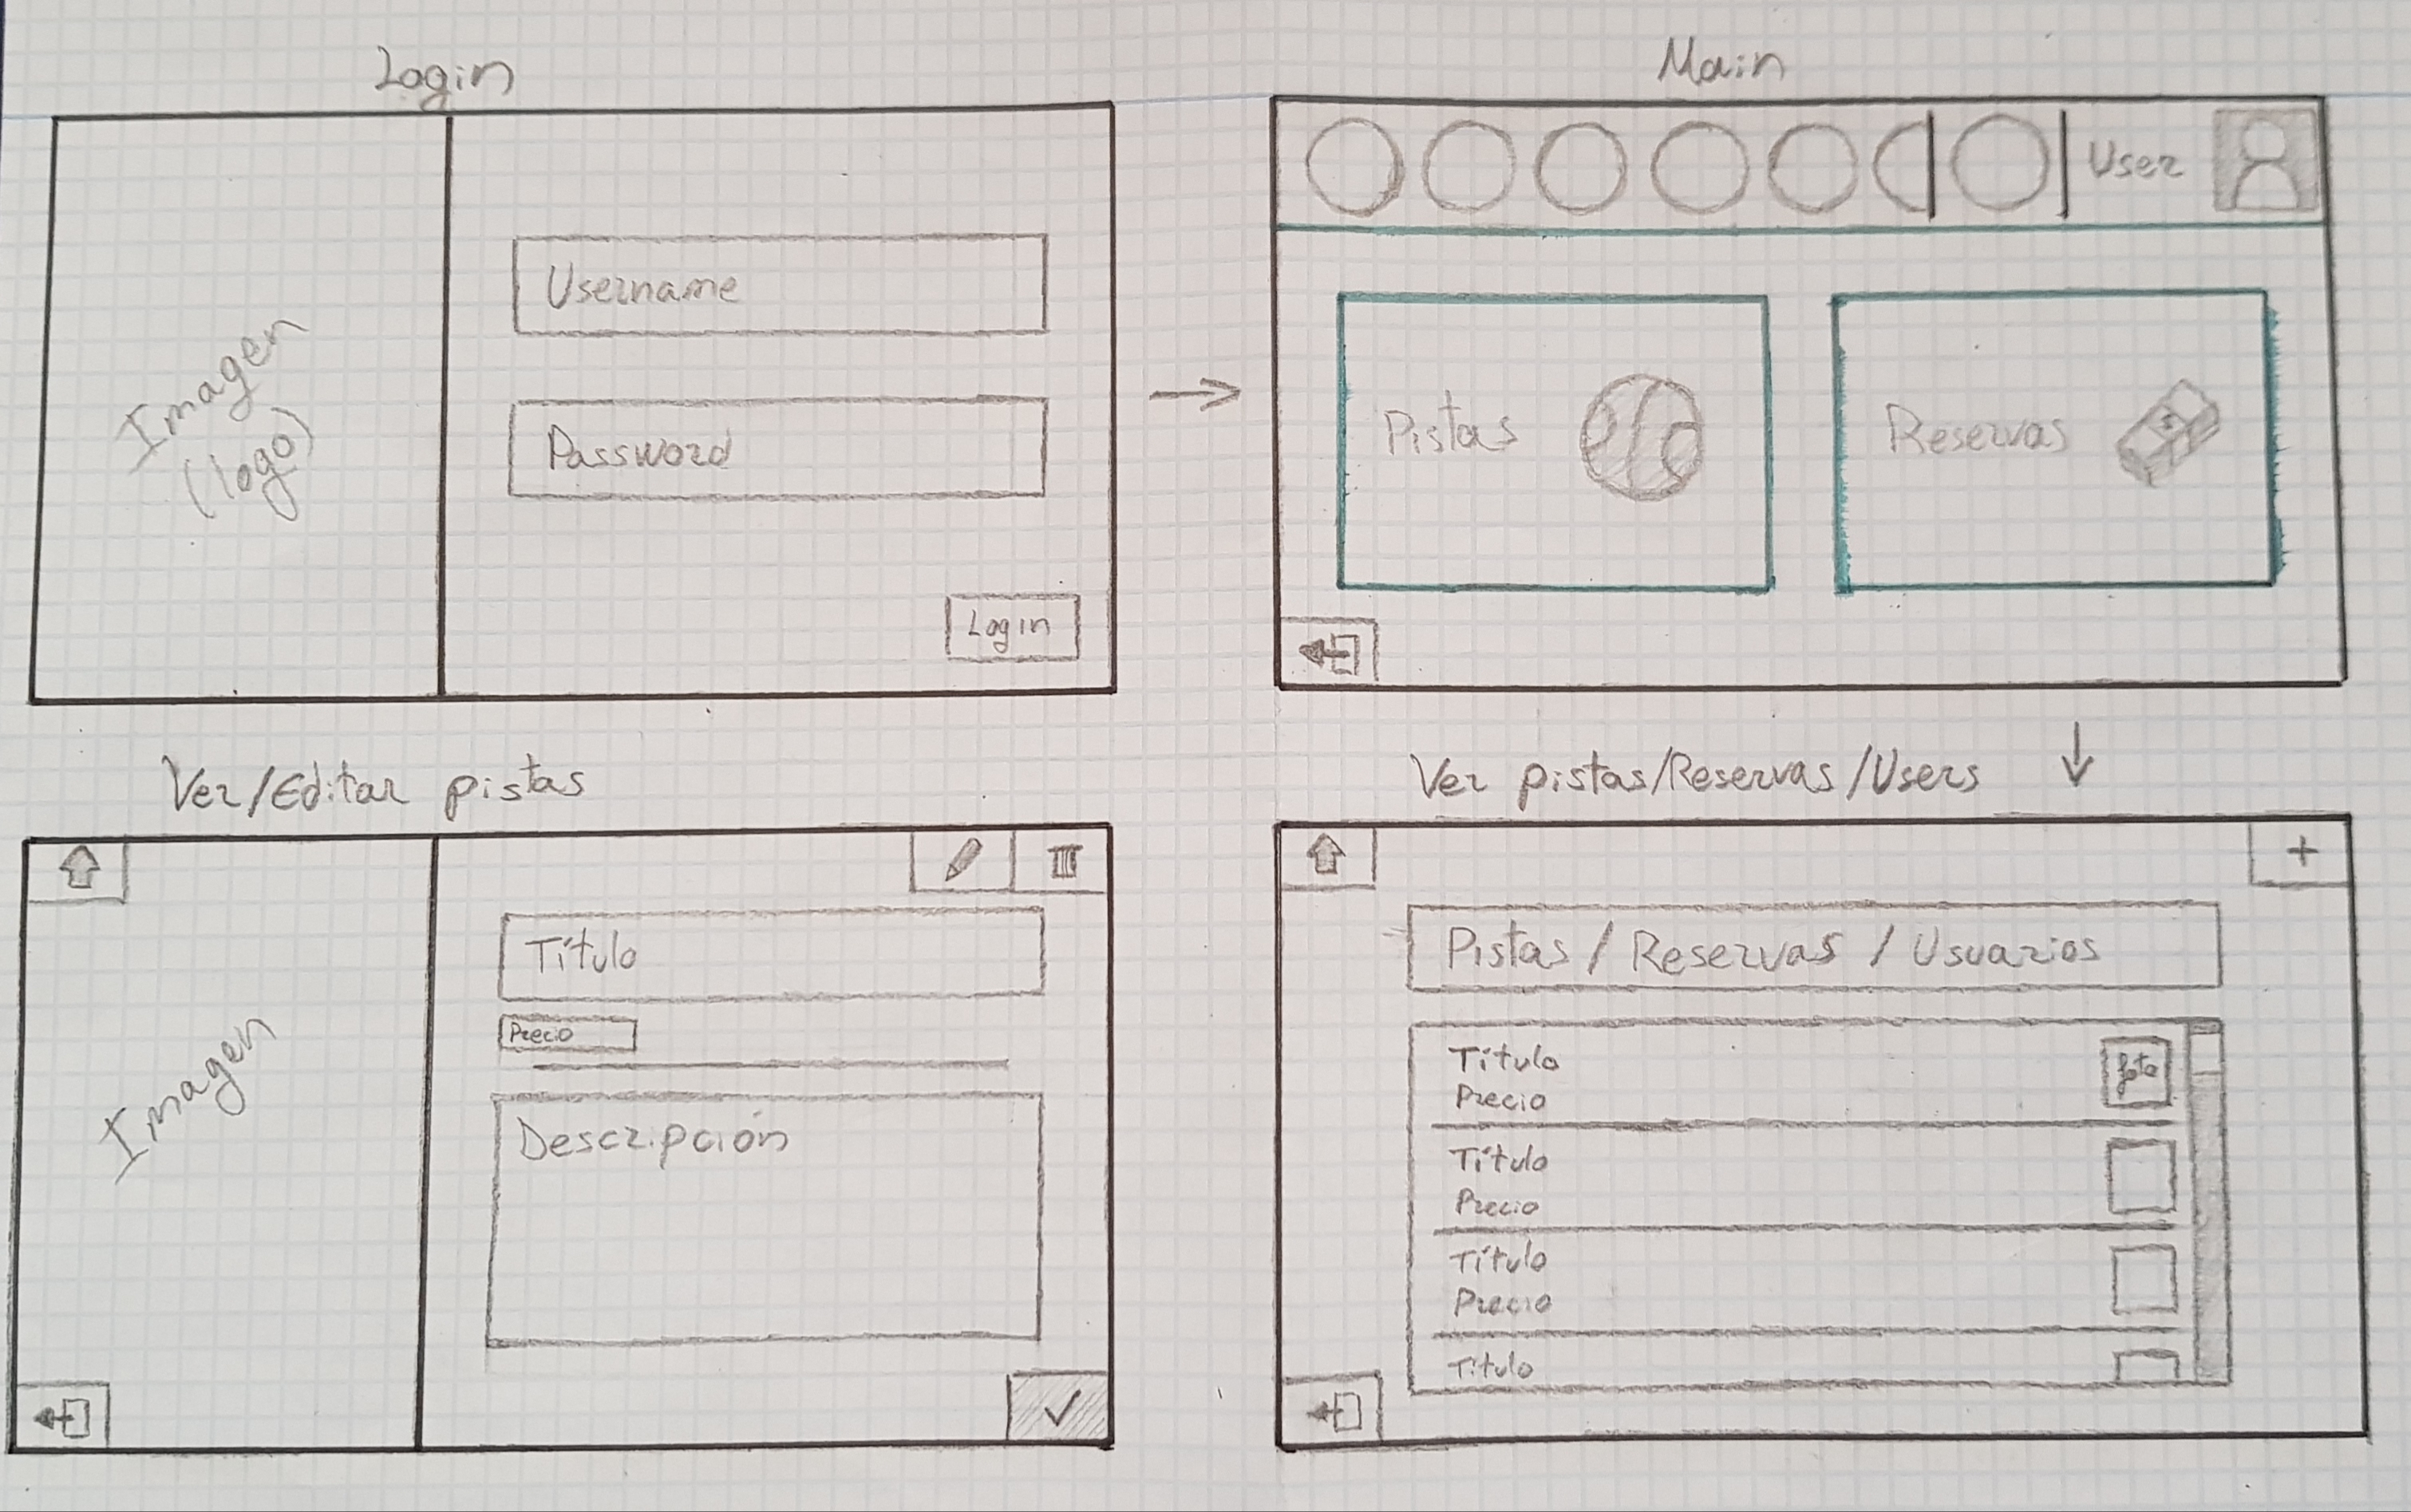 Login
Imagen
(logo)
Username
Password
Login
Main
User
Pistas
Reservas
Ver/Editar pistas
Imagen
Título
Precio
Descripción
Ver pistas/Reservas/Users
+
Pistas / Reservas / Usuarios
Título
Precio
foto
Título
Precio
Título
Precio
Título